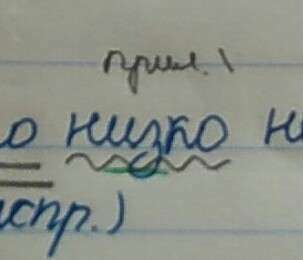 прил. \
о низко н
спр.)